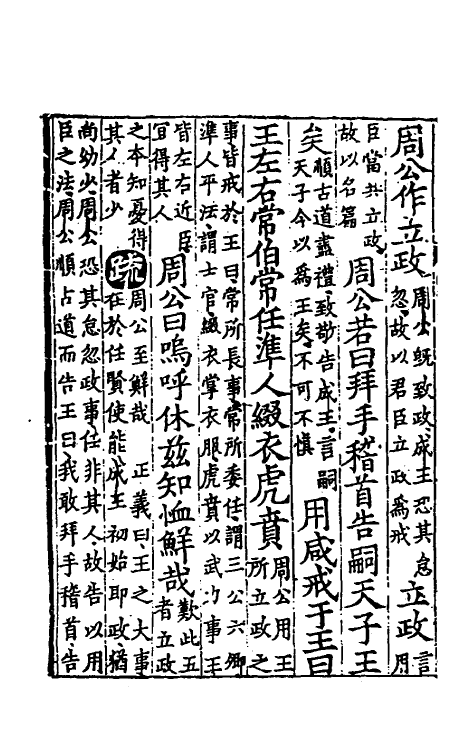 周公作立政周公既致政成王恐其怠忽故以君臣立政為戒立政言用
臣當共立政故以名篇周公若曰拜手稽首告嗣天子王
矣順古道盡禮致敬告成王言嗣天子今以為王矣不可不慎用咸戒于王曰
王左右常伯常任準人綴衣虎賁周公用王所立政之
事皆戒於王曰常所長事常所委任謂三公六卿
準人平法謂士官綴衣掌衣服虎賁以武力事王
皆左右近臣宜得其人周公曰嗚呼休茲知恤鮮哉歎此五者立政
之本知憂得其人者少疏周公至鮮哉 正義曰王之大事在於任賢使能成王初始即政猶
尚幼少周公恐其怠忽政事任非其人故告以用
臣之法周公順古道而告王曰我敢拜手稽首告